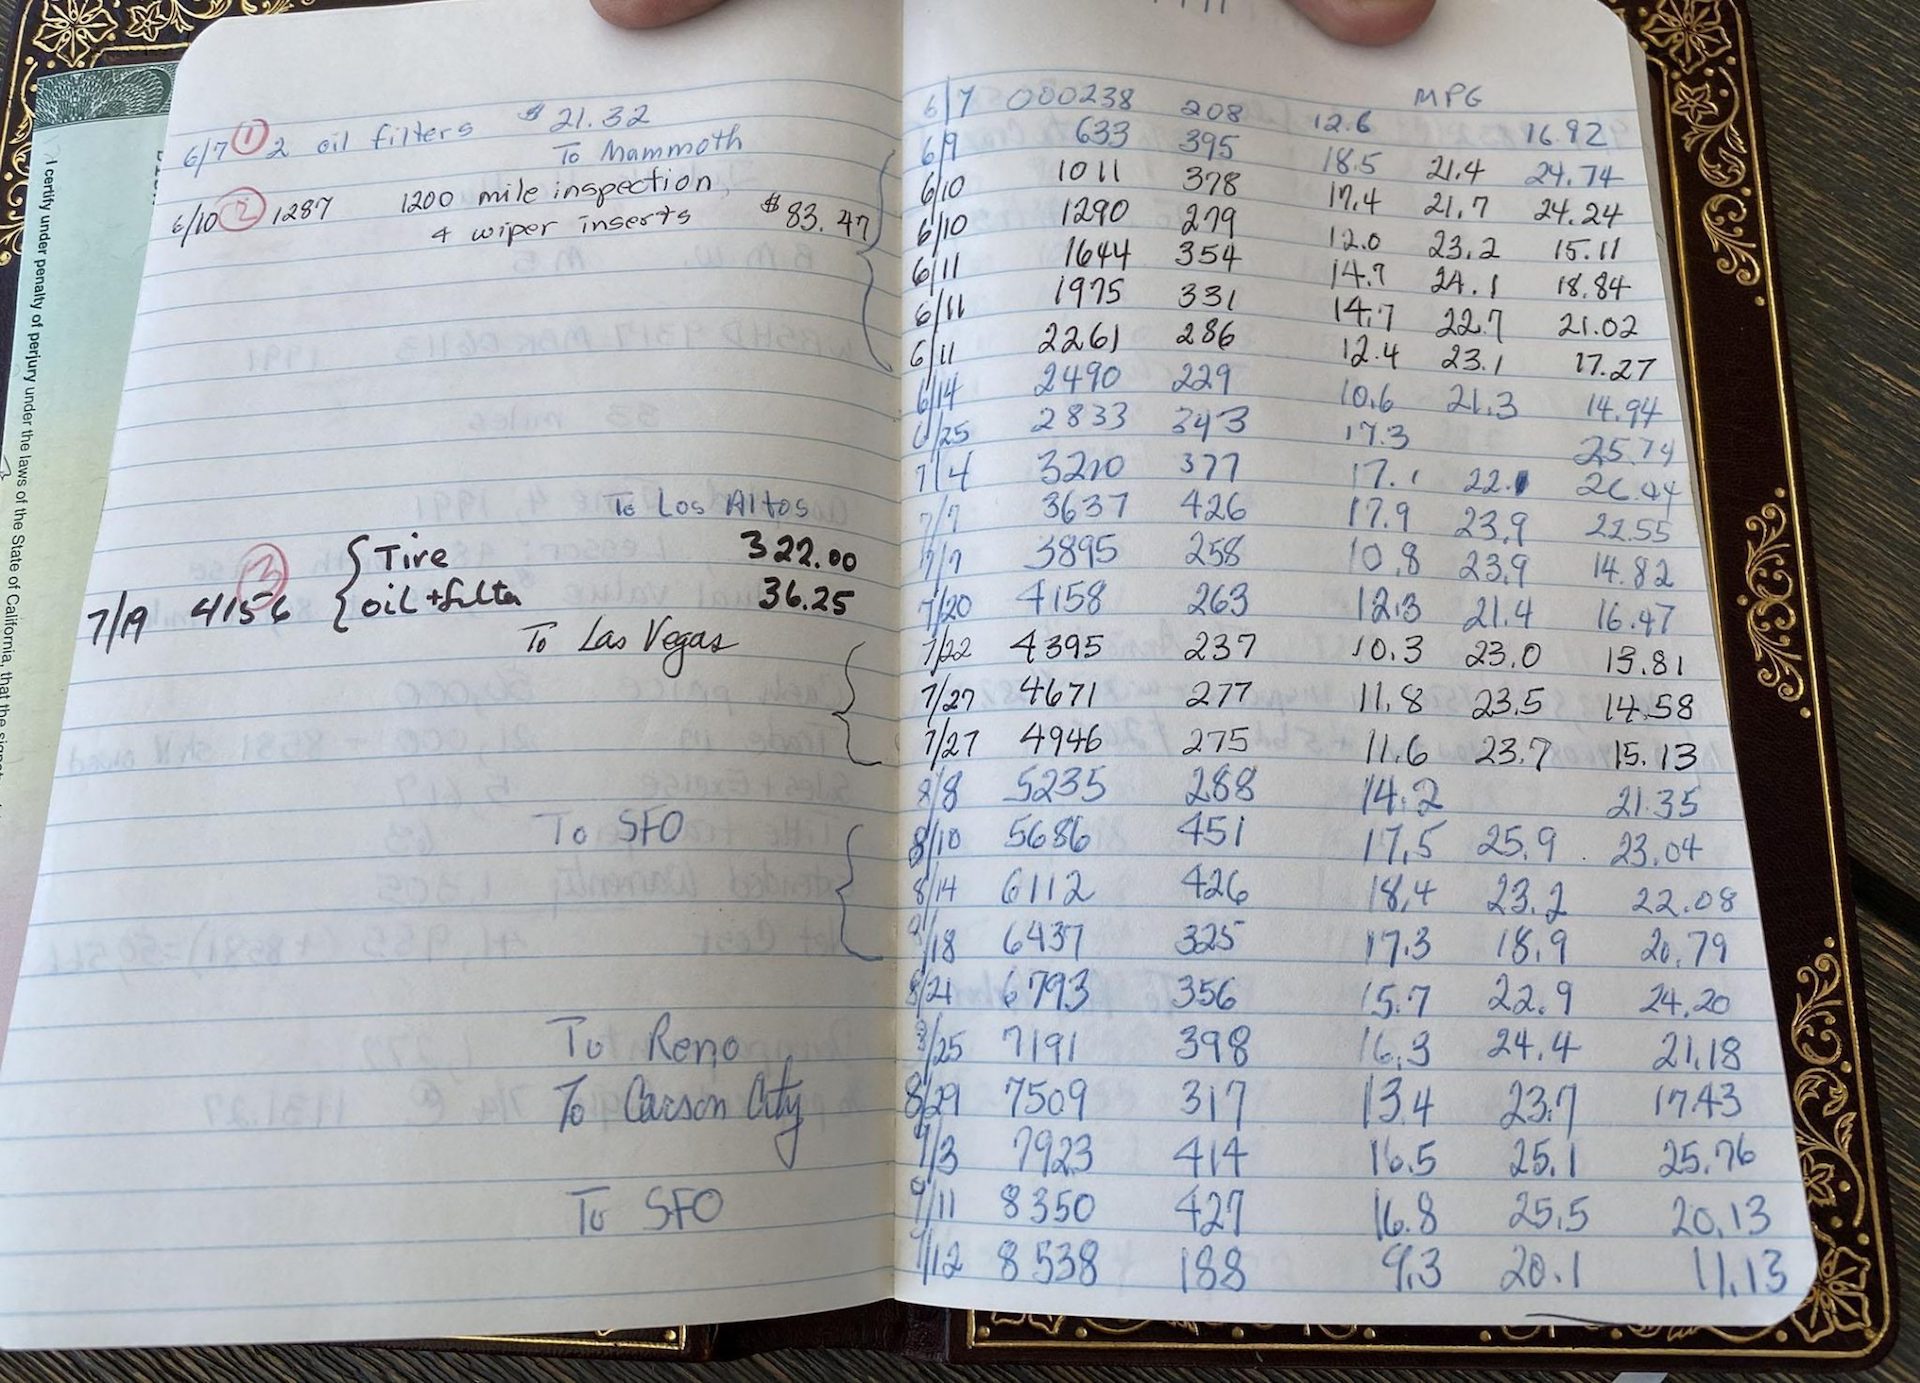 I certify under penalty of perjury under the laws of the State of California, that the
6/7 ① 2 oil filters $21.32
To Mammoth
6/10 ② 1287 1200 mile inspection,
4 wiper inserts $83.47
To Los Altos
③ Tire 322.00
7/19 4156 oil + filter 36.25
To Las Vegas
To SFO
To Reno
To Carson City
To SFO
MPG
6/7 000238 208 12.6 16.92
6/9 633 395 18.5 21.4 24.74
6/10 1011 378 17.4 21.7 24.24
6/10 1290 279 12.0 23.2 15.11
6/11 1644 354 14.7 24.1 18.84
6/11 1975 331 14.7 22.7 21.02
6/11 2261 286 12.4 23.1 17.27
6/14 2490 229 10.6 21.3 14.94
6/25 2833 343 17.3 25.74
7/4 3210 377 17.1 22. 26.44
7/7 3637 426 17.9 23.9 22.55
7/7 3895 258 10.8 23.9 14.82
7/20 4158 263 12.3 21.4 16.47
7/22 4395 237 10.3 23.0 13.81
7/27 4671 277 11.8 23.5 14.58
7/27 4946 275 11.6 23.7 15.13
8/8 5235 288 14.2 21.35
8/10 5686 451 17.5 25.9 23.04
8/14 6112 426 18.4 23.2 22.08
8/18 6437 325 17.3 18.9 20.79
8/21 6793 356 15.7 22.9 24.20
8/25 7191 398 16.3 24.4 21.18
8/29 7509 317 13.4 23.7 17.43
9/3 7923 414 16.5 25.1 25.76
9/11 8350 427 16.8 25.5 20.13
9/12 8538 188 9.3 20.1 11.13